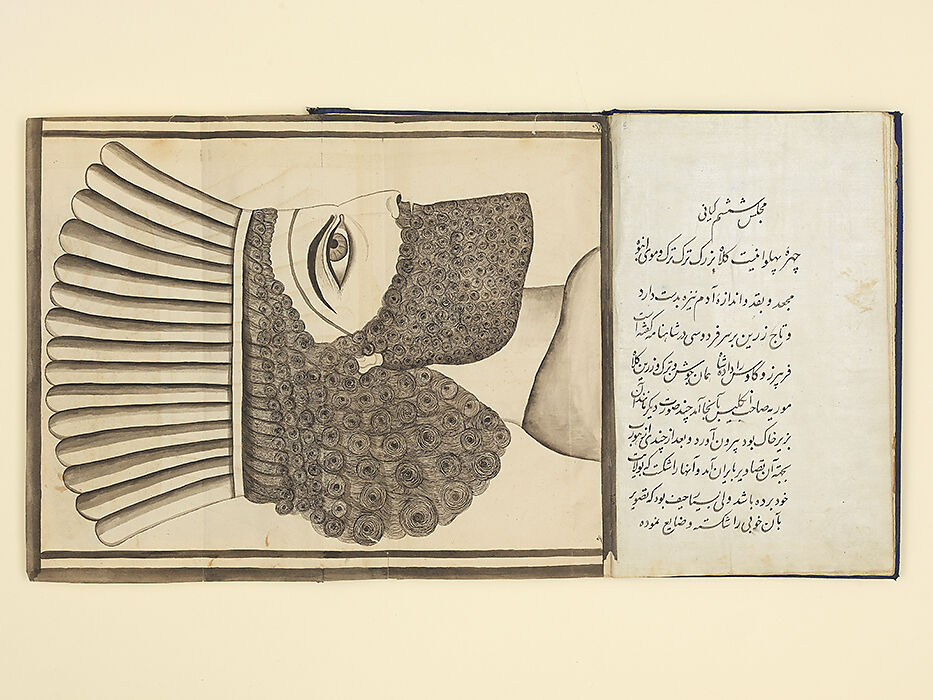 مجلس ششم کیانی
چهره پهلوانیست کلاه بزرگ ترک ترک و موی انبوه
مجعد و بقد و اندازهٔ آدم نیزه بدست دارد
و تاج زرین بر سر فردوسی در شاهنامه گفته است
فریبرز و کاوس را داد شاه همان جوشن و ترک و زرین کلاه
موریه صاحب انگلیس آنجا آمد چند صورت دیگر که
بزیر خاک بود بیرون آورد و بعد از چندی
بجهة آن تصاویر بایران آمد و آنها را شکست که بولایت
خود برده باشد ولی بسیار حیف بود که تصویر
بآن خوبی را شکسته و ضایع نموده